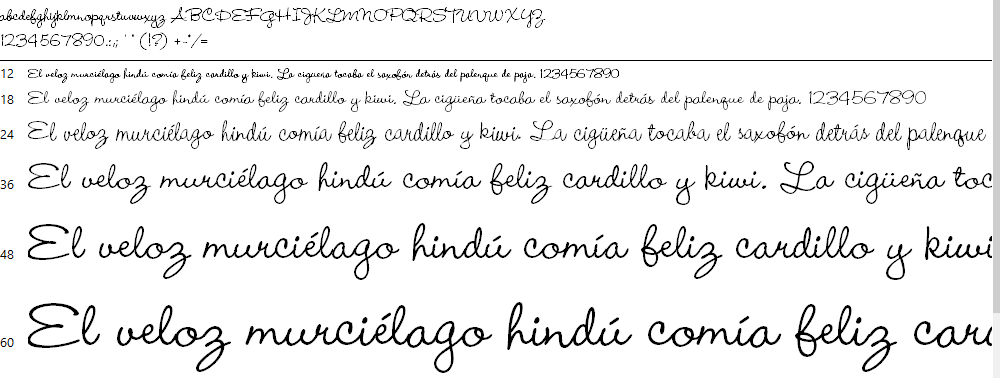 abcdefghijklmnopqrstuvwxyz ABCDEFGHIJKLMNOPQRSTUVWXYZ
1234567890.:,; ' " (!?) +-*/=
12 El veloz murciélago hindú comía feliz cardillo y kiwi. La cigüeña tocaba el saxofón detrás del palenque de paja. 1234567890
18 El veloz murciélago hindú comía feliz cardillo y kiwi. La cigüeña tocaba el saxofón detrás del palenque de paja. 1234567890
24 El veloz murciélago hindú comía feliz cardillo y kiwi. La cigüeña tocaba el saxofón detrás del palenque
36 El veloz murciélago hindú comía feliz cardillo y kiwi. La cigüeña toc
48 El veloz murciélago hindú comía feliz cardillo y kiwi
60 El veloz murciélago hindú comía feliz car